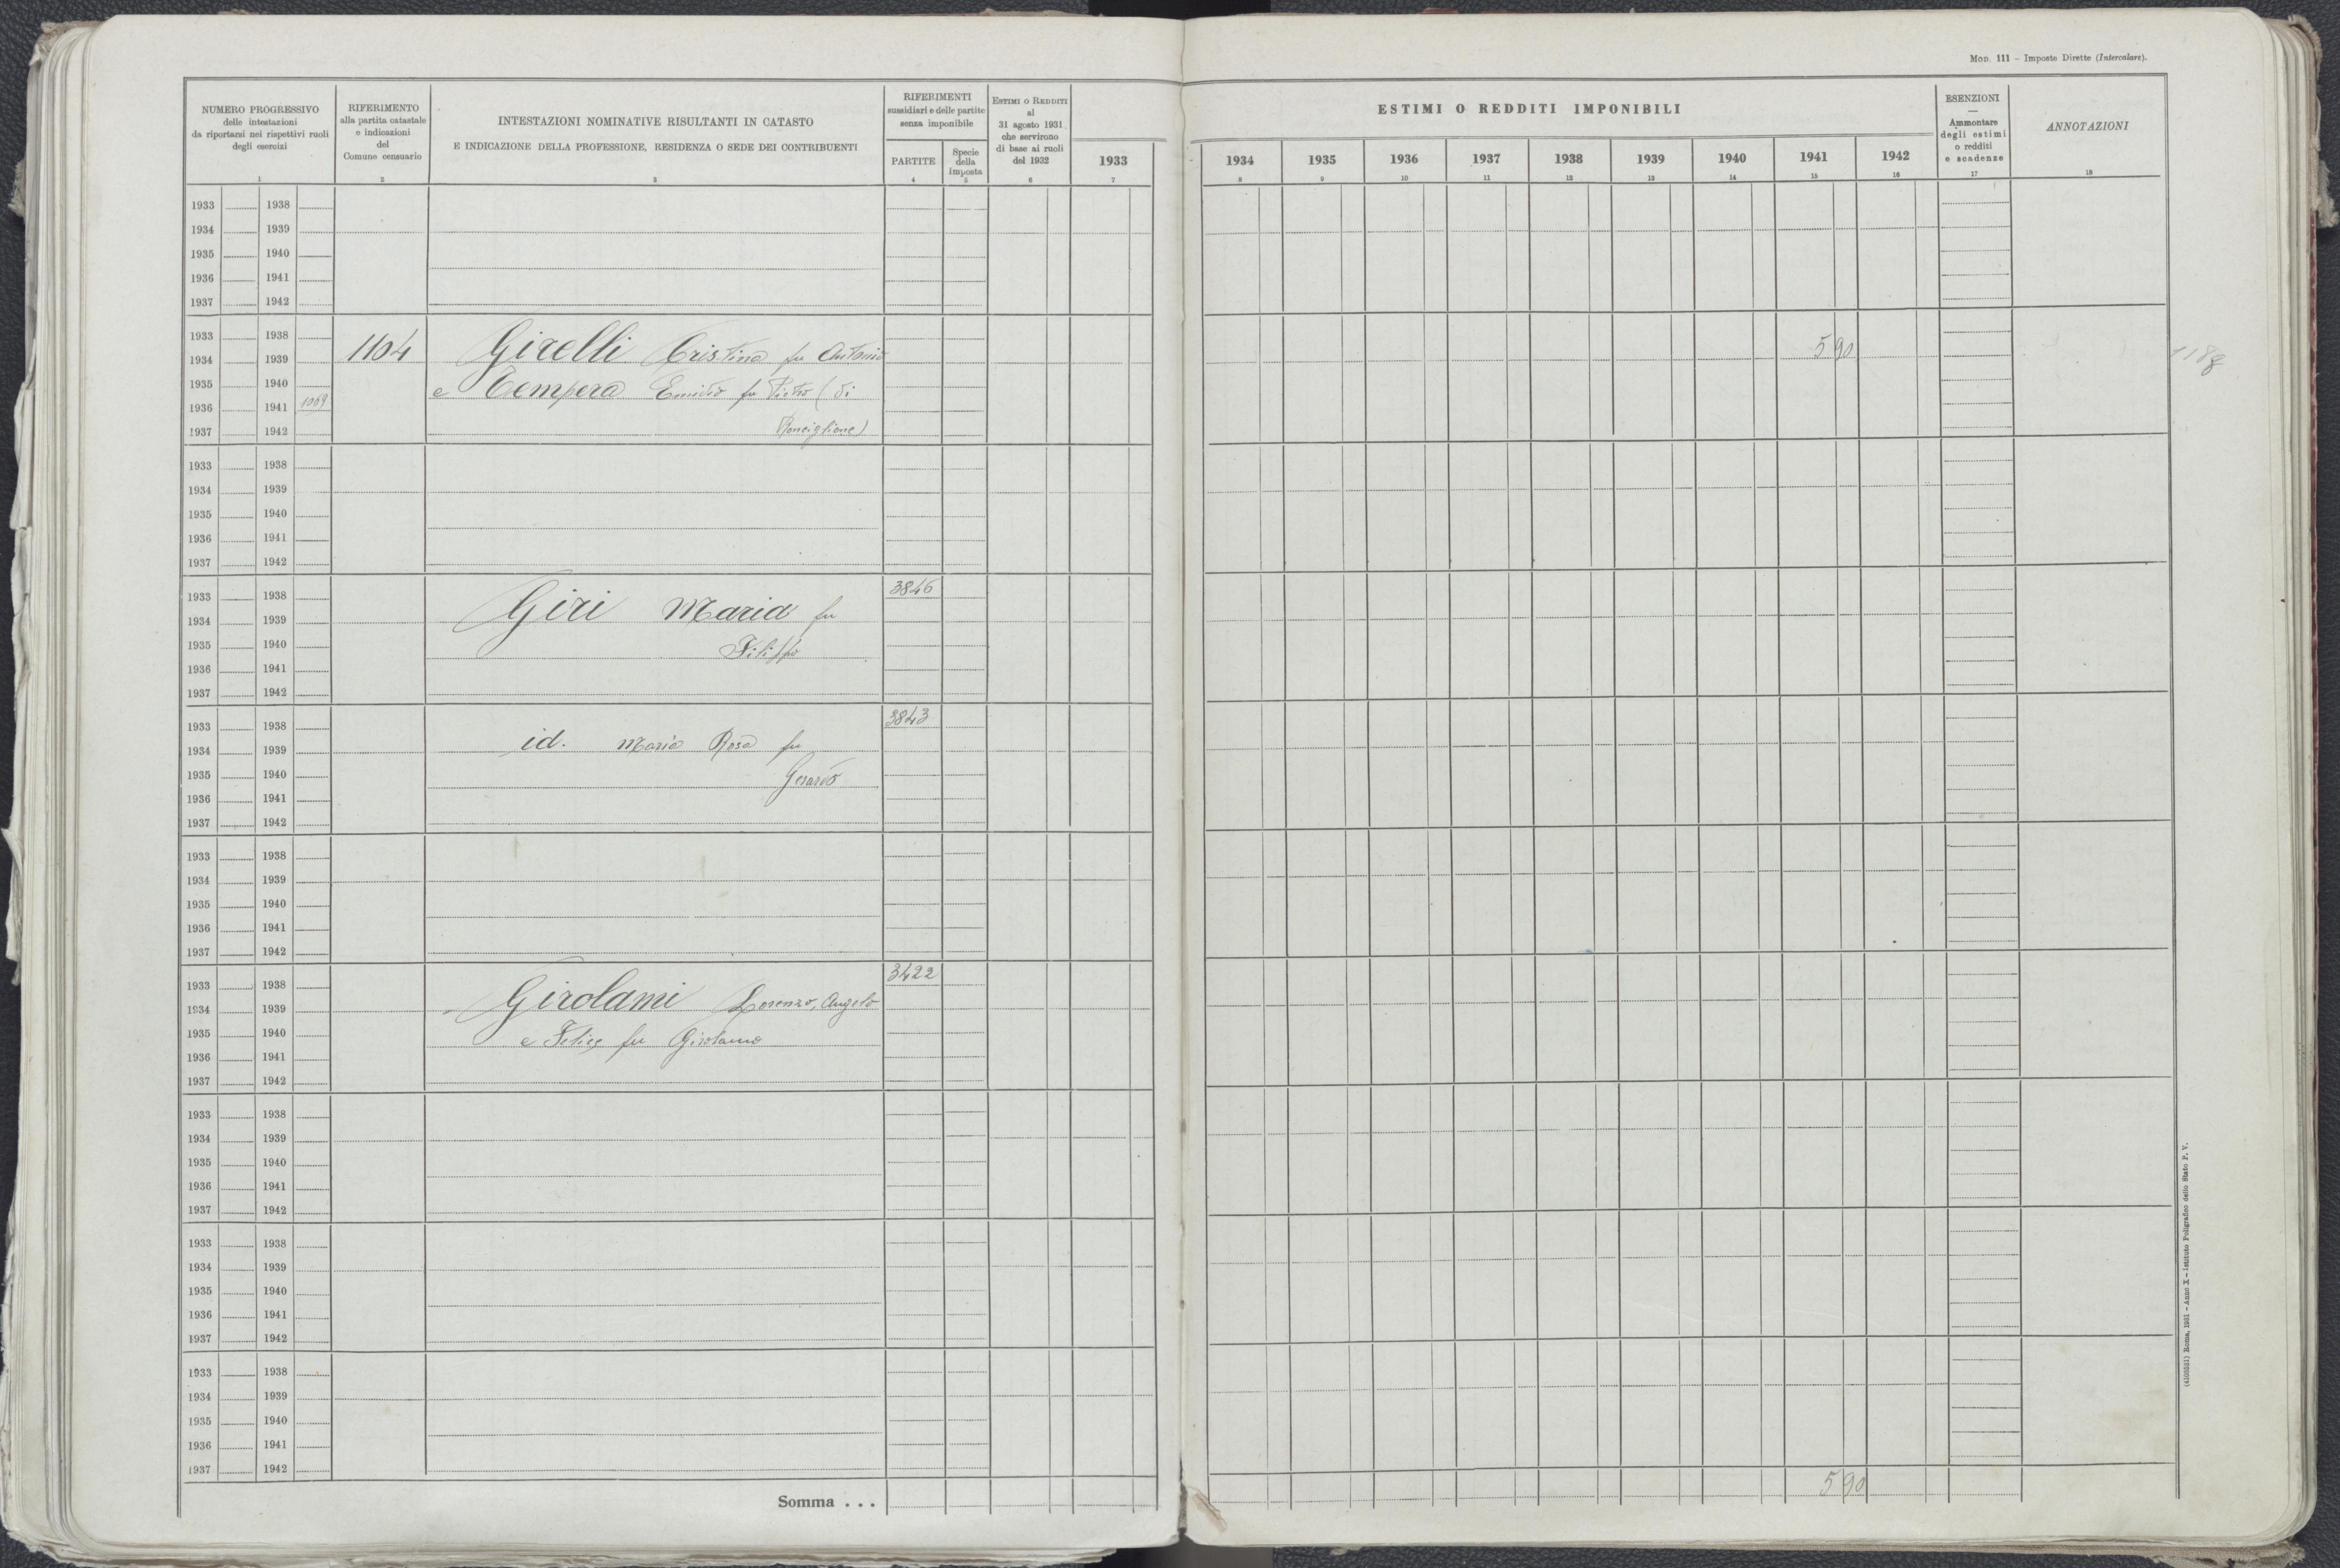 Mod. 111 – Imposte Dirette (Intercalare).
NUMERO PROGRESSIVO
delle intestazioni
da riportarsi nei rispettivi ruoli
degli esercizi
1
RIFERIMENTO
alla partita catastale
e indicazioni
del
Comune censuario
2
INTESTAZIONI NOMINATIVE RISULTANTI IN CATASTO
E INDICAZIONE DELLA PROFESSIONE, RESIDENZA O SEDE DEI CONTRIBUENTI
3
RIFERIMENTI
sussidiari e delle partite
senza imponibile
PARTITE
4
Specie
della
imposta
5
ESTIMI O REDDITI
al
31 agosto 1931
che servirono
di base ai ruoli
del 1932
6
1933
7
ESTIMI O REDDITI IMPONIBILI
1934 1935 1936 1937 1938 1939 1940 1941 1942
8 9 10 11 12 13 14 15 16
ESENZIONI
—
Ammontare
degli estimi
o redditi
e scadenze
17
ANNOTAZIONI
18
1933 1938
1934 1939
1935 1940
1936 1941
1937 1942
1933 1938
1934 1939 1104 Girelli Cristina fu Antonio 5 90
1935 1940 e Tempera Emidio fu Pietro (di
1936 1941 1069
1937 1942 Ronciglione)
1933 1938
1934 1939
1935 1940
1936 1941
1937 1942
1933 1938 3846
1934 1939 Giri Maria fu
1935 1940 Filippo
1936 1941
1937 1942
1933 1938 3843
1934 1939 id. Maria Rosa fu
1935 1940 Gerardo
1936 1941
1937 1942
1933 1938
1934 1939
1935 1940
1936 1941
1937 1942
1933 1938 3422
1934 1939 Girolami Lorenzo, Angelo
1935 1940 e Felice fu Girolamo
1936 1941
1937 1942
1933 1938
1934 1939
1935 1940
1936 1941
1937 1942
1933 1938
1934 1939
1935 1940
1936 1941
1937 1942
1933 1938
1934 1939
1935 1940
1936 1941
1937 1942
Somma . . . 5 90
(4103581) Roma, 1931 – Anno X – Istituto Poligrafico dello Stato P. V.